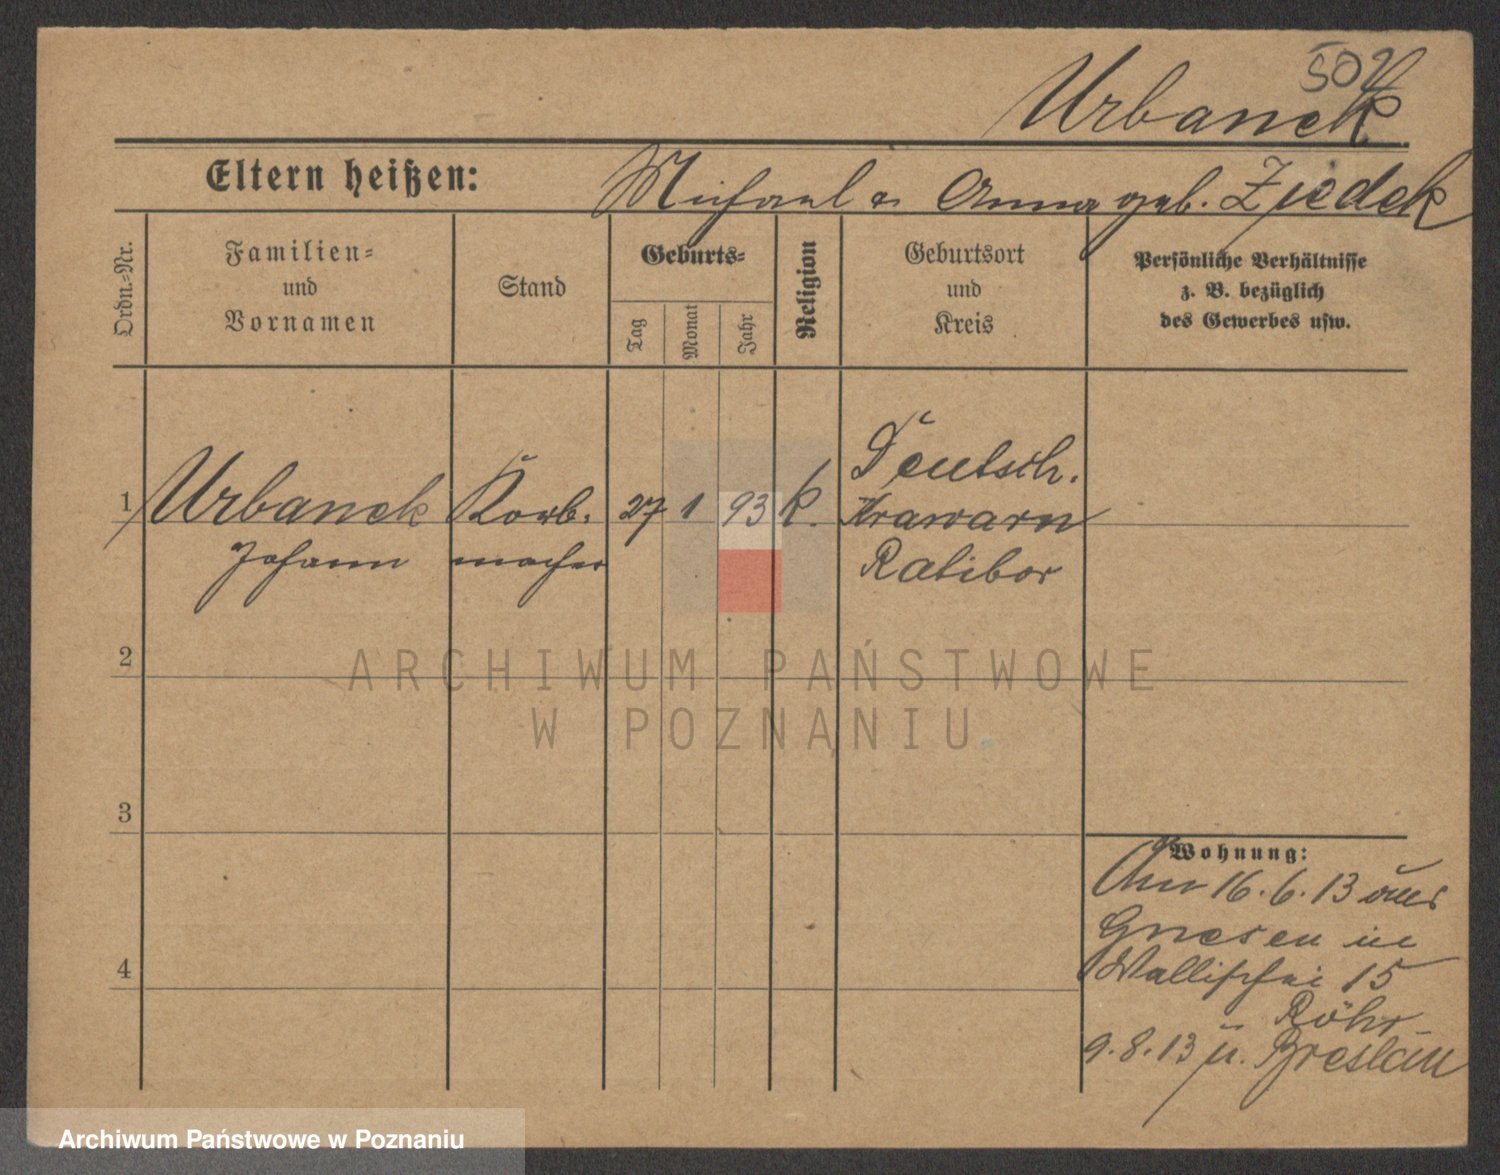 502
Urbanek
Eltern heißen: Michael u. Anna geb.
Ordn.-Nr.
Familien-
und
Vornamen
Stand
Geburts-
Tag
Monat
Jahr
Religion
Geburtsort
und
Kreis
Persönliche Verhältnisse
z. B. bezüglich
des Gewerbes usw.
1 Urbanek Korb- 27 1 93 k. Deutsch.
Krawarn
Johann macher Ratibor
2
ARCHIWUM PAŃSTWOWE
W POZNANIU
3
4
Wohnung:
16.6.13 aus
Gnesen in
Wallischei 15
Röhr
9.8.13 n. Breslau
Archiwum Państwowe w Poznaniu